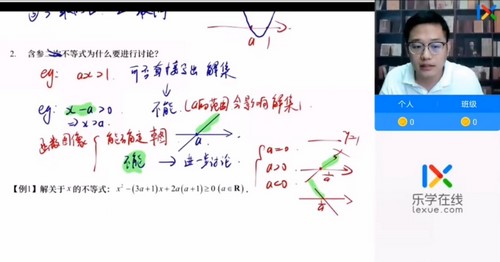 2. 含参不等式为什么要进行讨论?
a 1
eg: ax>1. 可否直接写出解集
eg: x-a>0 不能. (a的范围会影响解集)
⇒ x>a.
a
函数图像 { 能确定草图
不能 → 进一步讨论
{ a=0
a>0
a<0
y=1
【例1】解关于x的不等式: x²-(3a+1)x+2a(a+1)≥0 (a∈R).
个人 班级
0 0
乐学在线
lexue.com